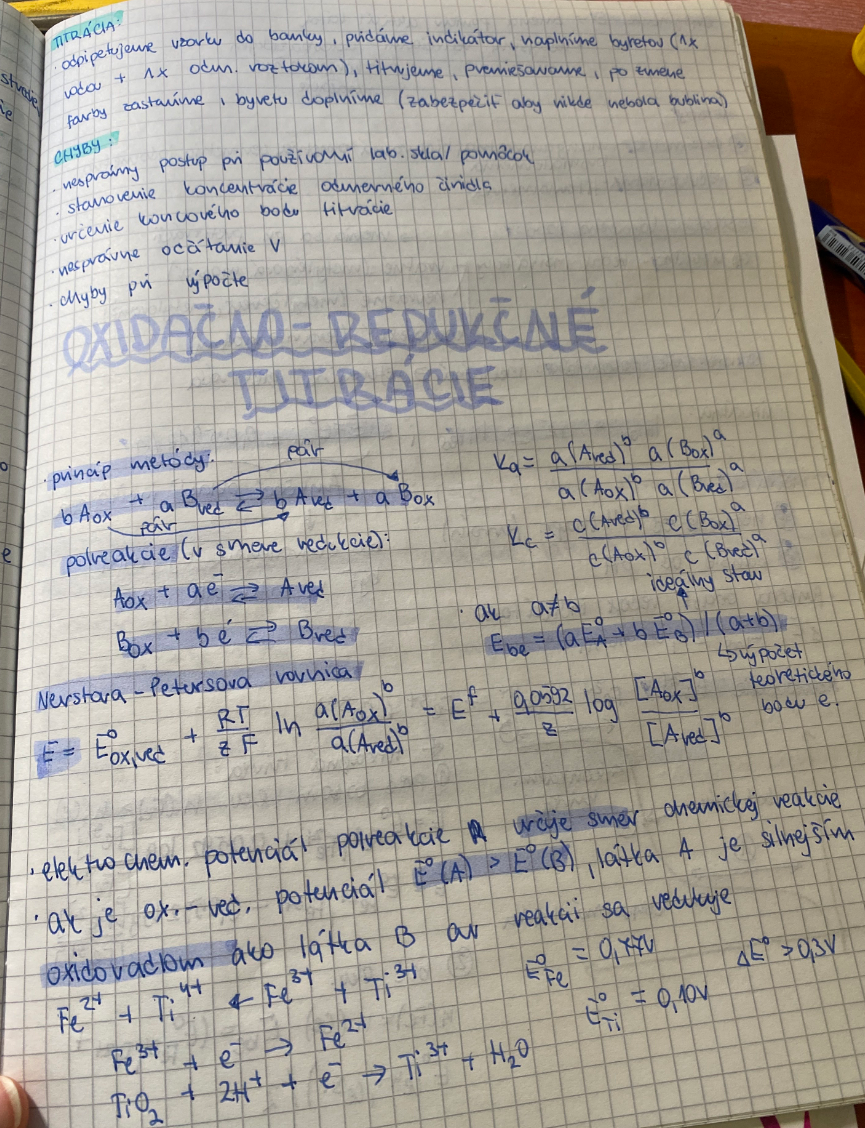 TITRÁCIA:
· odpipetujeme vzorku do banky, pridáme indikátor, naplníme byretou (1x
vodou + 1x odm. roztokom), titrujeme, premiešavame, po zmene
farby zastavíme, byretu doplníme (zabezpečiť aby nikde nebola bublina)
CHYBY:
· nesprávny postup pri používaní lab. skla/pomôcok
· stanovenie koncentrácie odmerného činidla
· určenie koncového bodu titrácie
· nesprávne očítanie V
· chyby pri výpočte
OXIDAČNO-REDUKČNÉ
TITRÁCIE
· princíp metódy:
pár
b Aox + a Bred ⇌ b Ared + a Box
pár
Ka = a(Ared)^b a(Box)^a / a(Aox)^b a(Bred)^a
Kc = c(Ared)^b c(Box)^a / c(Aox)^b c(Bred)^a
polreakcie (v smere redukcie):
Aox + a e⁻ ⇌ Ared
Box + b e⁻ ⇌ Bred
ideálny stav
· ak a≠b
Ebe = (aE°A + bE°B)/(a+b)
↳ výpočet
teoretického
bodu e.
Nernstova-Petersova rovnica
E = E°ox,red + RT/zF ln a(Aox)^b/a(Ared)^b = E^f + 0,0592/z log [Aox]^b/[Ared]^b
· elektrochem. potenciál polreakcie určuje smer chemickej reakcie
· ak je ox.-red. potenciál E°(A) > E°(B), látka A je silnejším
oxidovadlom ako látka B a v reakcii sa redukuje
Fe²⁺ + Ti⁴⁺ ← Fe³⁺ + Ti³⁺
E°Fe = 0,77V
ΔE° > 0,3V
Fe³⁺ + e⁻ → Fe²⁺
E°Ti = 0,10V
TiO₂ + 2H⁺ + e⁻ → Ti³⁺ + H₂O